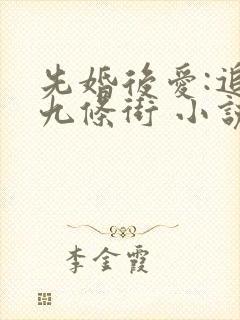 先婚後愛:追
九條街 小說
李金霞